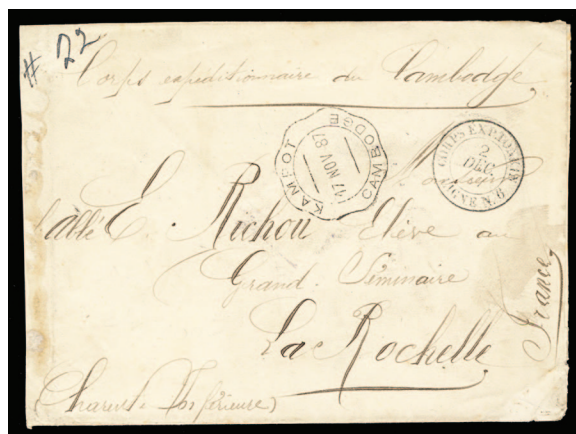 # 22
Corps expéditionnaire du Cambodge
KAMPOT CAMBODGE
17 NOV 87
CORPS EXP. TONKIN
2
DEC
LIGNE N. 6
Monsieur
l'abbé E. Richou Elève au
Grand Séminaire
La Rochelle
France
(Charente Inférieure)